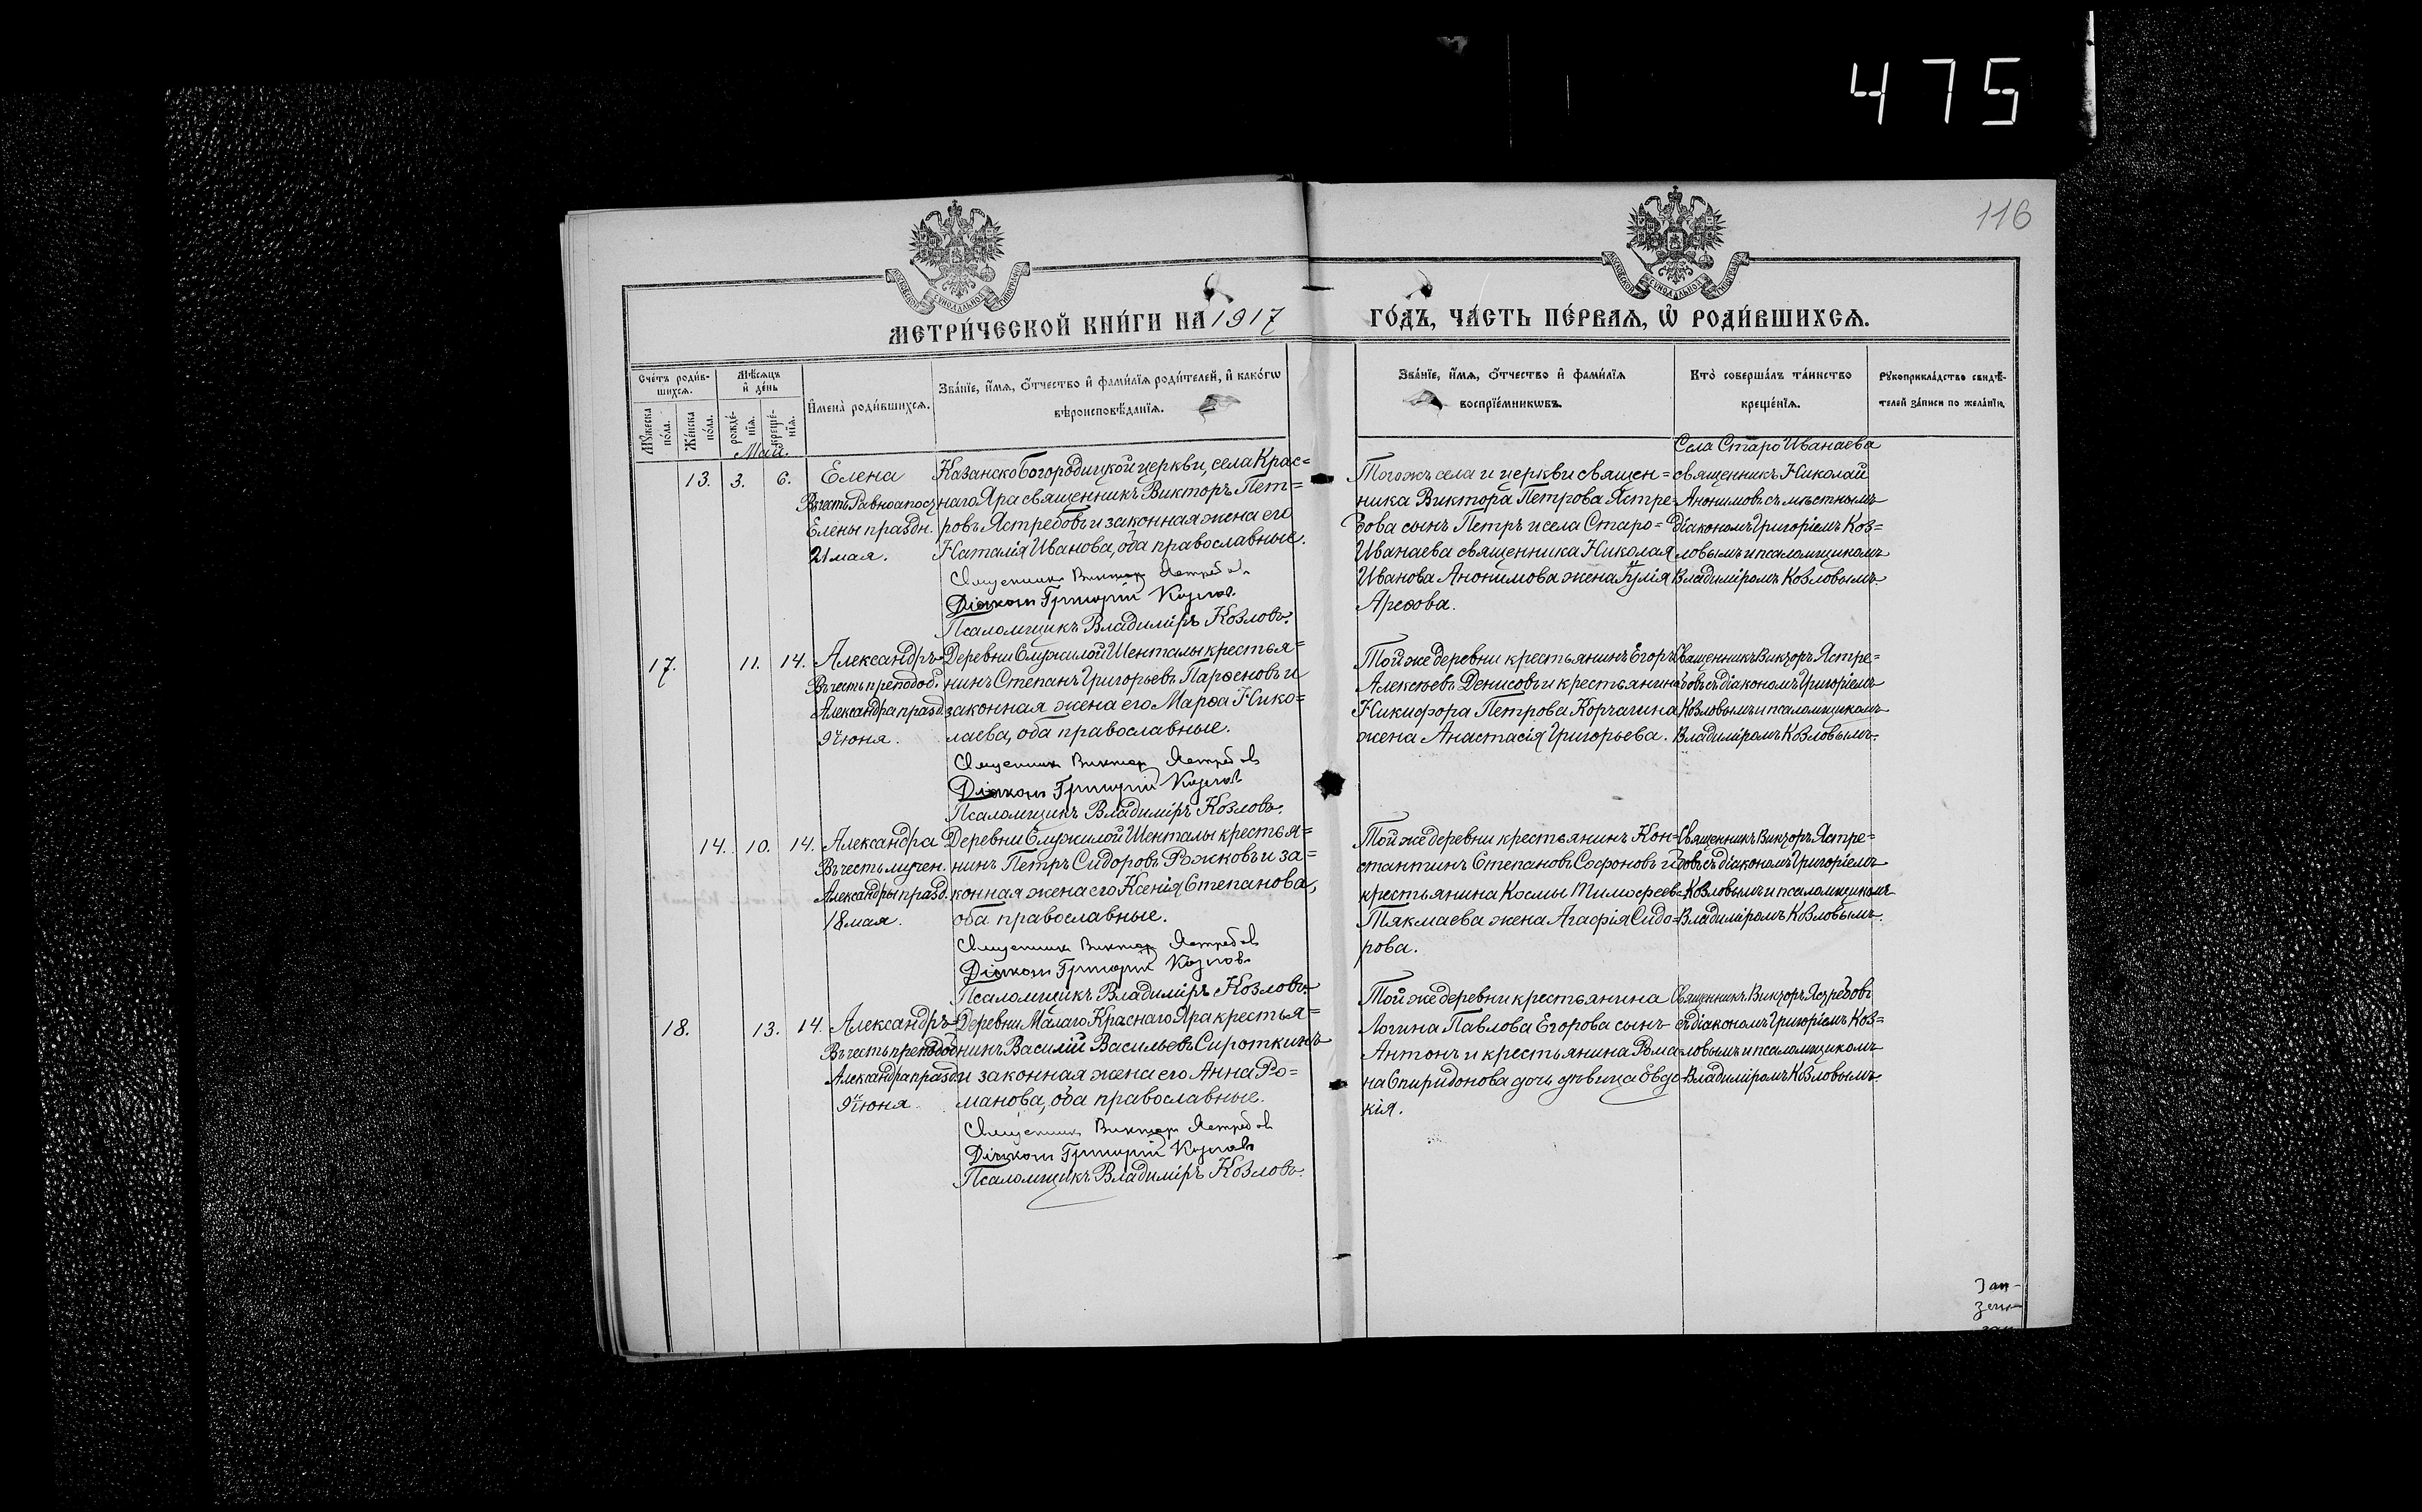 475
116
МЕТРИ́ЧЕСКОЙ КНИ́ГИ НА 1917 ГО́ДЪ, ЧА́СТЬ ПЕ́РВАЯ, Ѡ РОДИ́ВШИХСЯ.
Сче́тъ роди́в-
шихся.
Мѣ́сяцъ
и҆ де́нь
Мꙋ́жеска
по́ла.
Же́нска
по́ла.
рожде́-
нїя.
креще́-
нїя.
И҆мена̀ роди́вшихся.
Зва́нїе, и҆́мя, ѻ҆́тчество и҆ фами́лїя роди́телей, и҆ како́гѡ
вѣроисповѣ́данїя.
Зва́нїе, и҆́мя, ѻ҆́тчество и҆ фами́лїя
воспрїе́мникѡвъ.
Кто̀ соверша́лъ та́инство
креще́нїя.
Рꙋкоприкла́дство свидѣ́-
телей за́писи по жела́нїю.
Май.
13. 3. 6. Елена
Въ честь Равноапос.
Елены праздн.
21 мая.
Казанско Богородицкой церкви, села Крас=
наго Яра священникъ Викторъ Пет=
ровъ Ястребовъ и законная жена его
Наталія Иванова, оба православные.
Священникъ Викторъ Ястребовъ
Діаконъ Григорій Козловъ
Псаломщикъ Владиміръ Козловъ.
Того жъ села и церкви священ=
ника Виктора Петрова Ястре=
бова сынъ Петръ и села Старо=
Иванаева священника Николая
Иванова Анонимова жена Іулія
Ареѳова.
Села Старо Иванаева
священникъ Николай
Анонимовъ съ мѣстнымъ
діакономъ Григоріемъ Коз=
ловымъ и псаломщикомъ
Владиміромъ Козловымъ.
17. 11. 14. Александръ
Въ честь преподоб.
Александра празд.
9 іюня.
Деревни Служилой Шенталы крестья=
нинъ Степанъ Григорьевъ Парѳеновъ и
законная жена его Марѳа Нико=
лаева, оба православные.
Священникъ Викторъ Ястребовъ
Діаконъ Григорій Козловъ
Псаломщикъ Владиміръ Козловъ.
Той же деревни крестьянинъ Егоръ
Алексѣевъ Денисовъ и крестьянина
Никифора Петрова Корчагина
жена Анастасія Григорьева.
Священникъ Викторъ Ястре=
бовъ съ діакономъ Григоріемъ
Козловымъ и псаломщикомъ
Владиміромъ Козловымъ.
14. 10. 14. Александра
Въ честь мучен.
Александры празд.
18 мая.
Деревни Служилой Шенталы крестья=
нинъ Петръ Сидоровъ Рожковъ и за=
конная жена его Ксенія Степанова,
оба православные.
Священникъ Викторъ Ястребовъ
Діаконъ Григорій Козловъ
Псаломщикъ Владиміръ Козловъ.
Той же деревни крестьянинъ Кон=
стантинъ Степановъ Софоновъ и
крестьянина Космы Тимофеев=
Тякмаева жена Агафія Сидо=
рова.
Священникъ Викторъ Ястре=
бовъ съ діакономъ Григоріемъ
Козловымъ и псаломщикомъ
Владиміромъ Козловымъ.
18. 13. 14. Александръ
Въ честь преподоб
Александра празд.
9 іюня.
Деревни Малаго Краснаго Яра крестья=
нинъ Василій Васильевъ Сироткинъ
и законная жена его Анна Ро=
манова, оба православные.
Священникъ Викторъ Ястребовъ
Діаконъ Григорій Козловъ
Псаломщикъ Владиміръ Козловъ.
Той же деревни крестьянина
Логина Павлова Егорова сынъ
Антонъ и крестьянина Рома
на Спиридонова дочь дѣвица Евдо=
кія.
Священникъ Викторъ Ястребовъ
съ діакономъ Григоріемъ Коз=
ловымъ и псаломщикомъ
Владиміромъ Козловымъ.